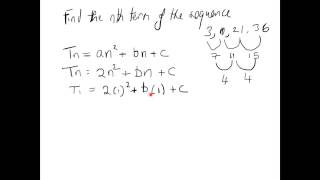 Find the nth term of the sequence
3, 10, 21, 36
7 11 15
4 4
Tn = an² + bn + c
Tn = 2n² + bn + c
T₁ = 2(1)² + b(1) + c